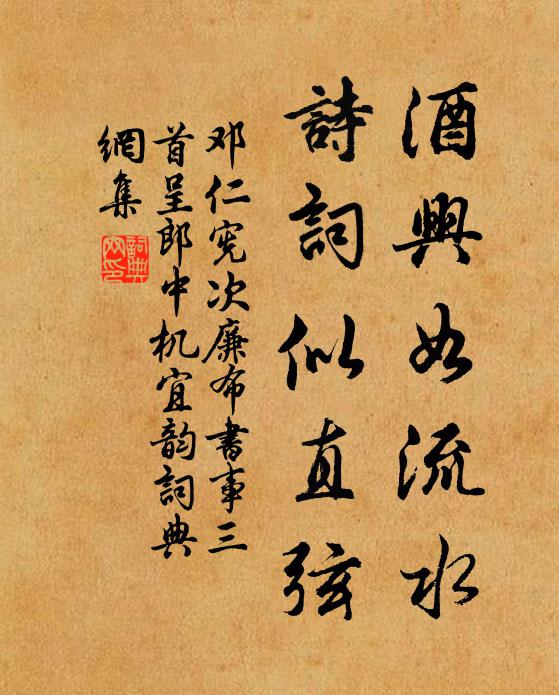 酒興如流水
詩詞似直弦
邓仁宪次廉布書事三
首呈郎中机宜韵詞典
網集
詞典
网印